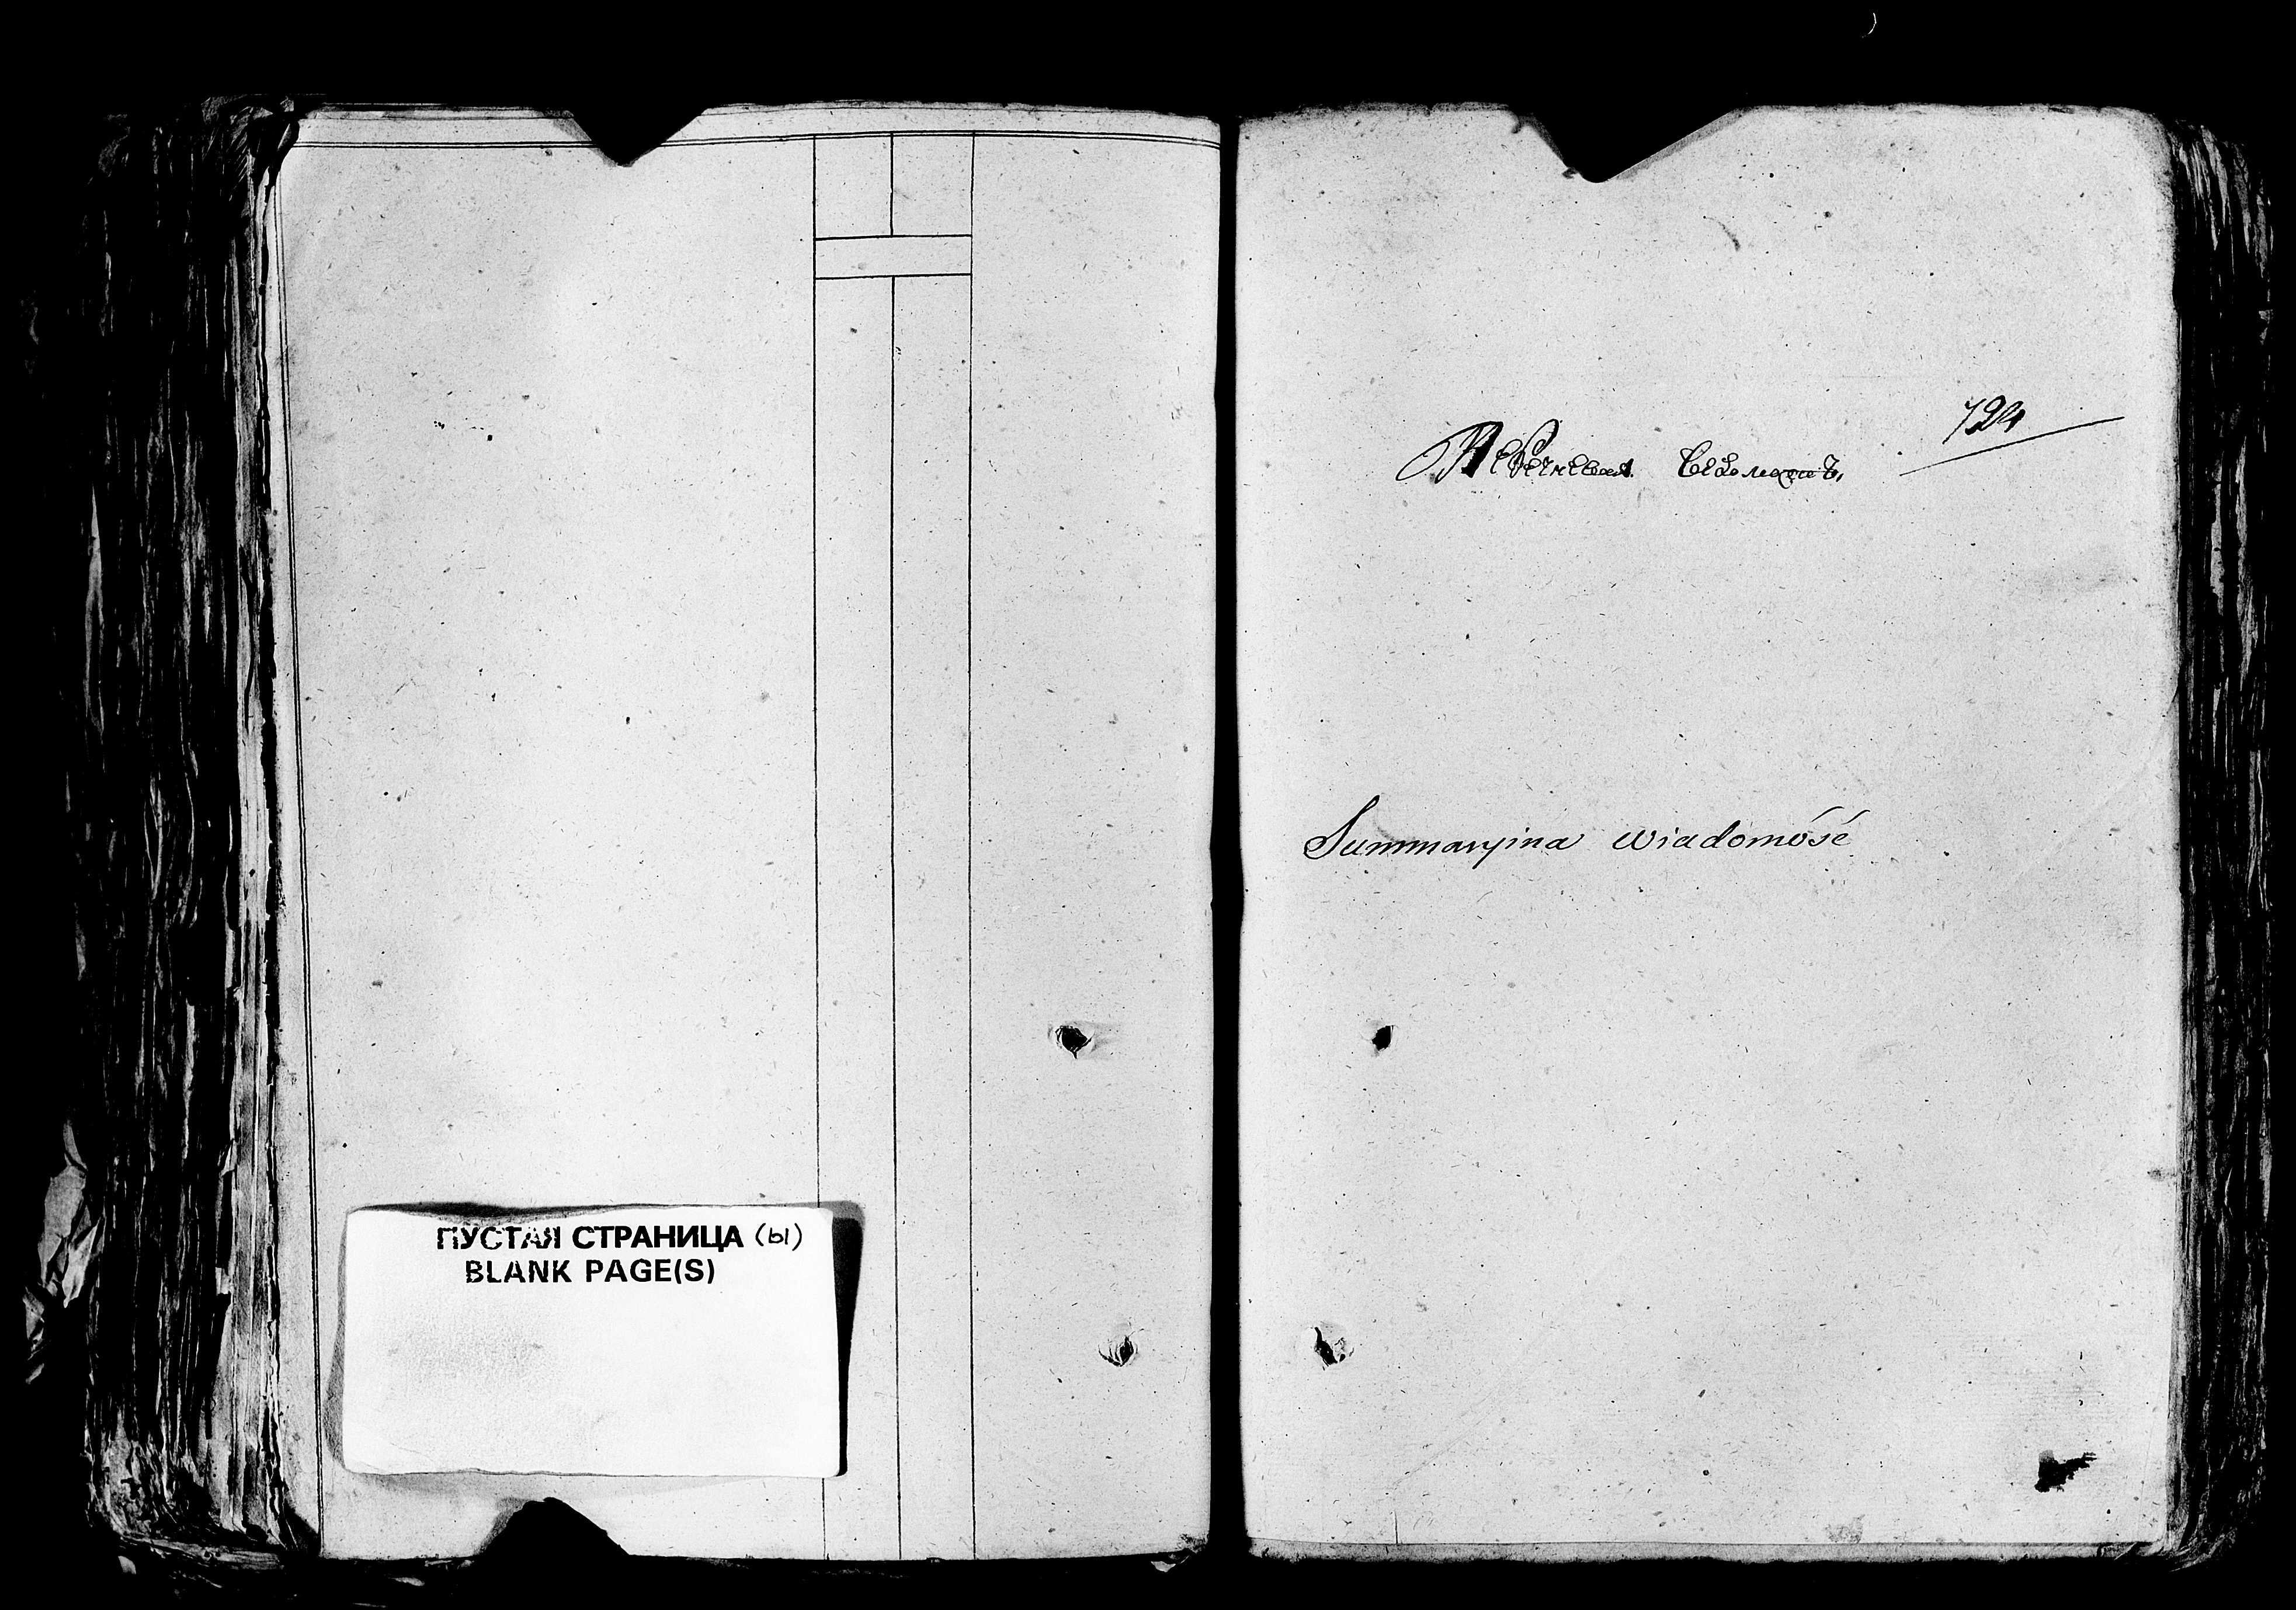 ПУСТАЯ СТРАНИЦА (ы)
BLANK PAGE(S)
724
Перечневая ведомость
Summaryjna wiadomość